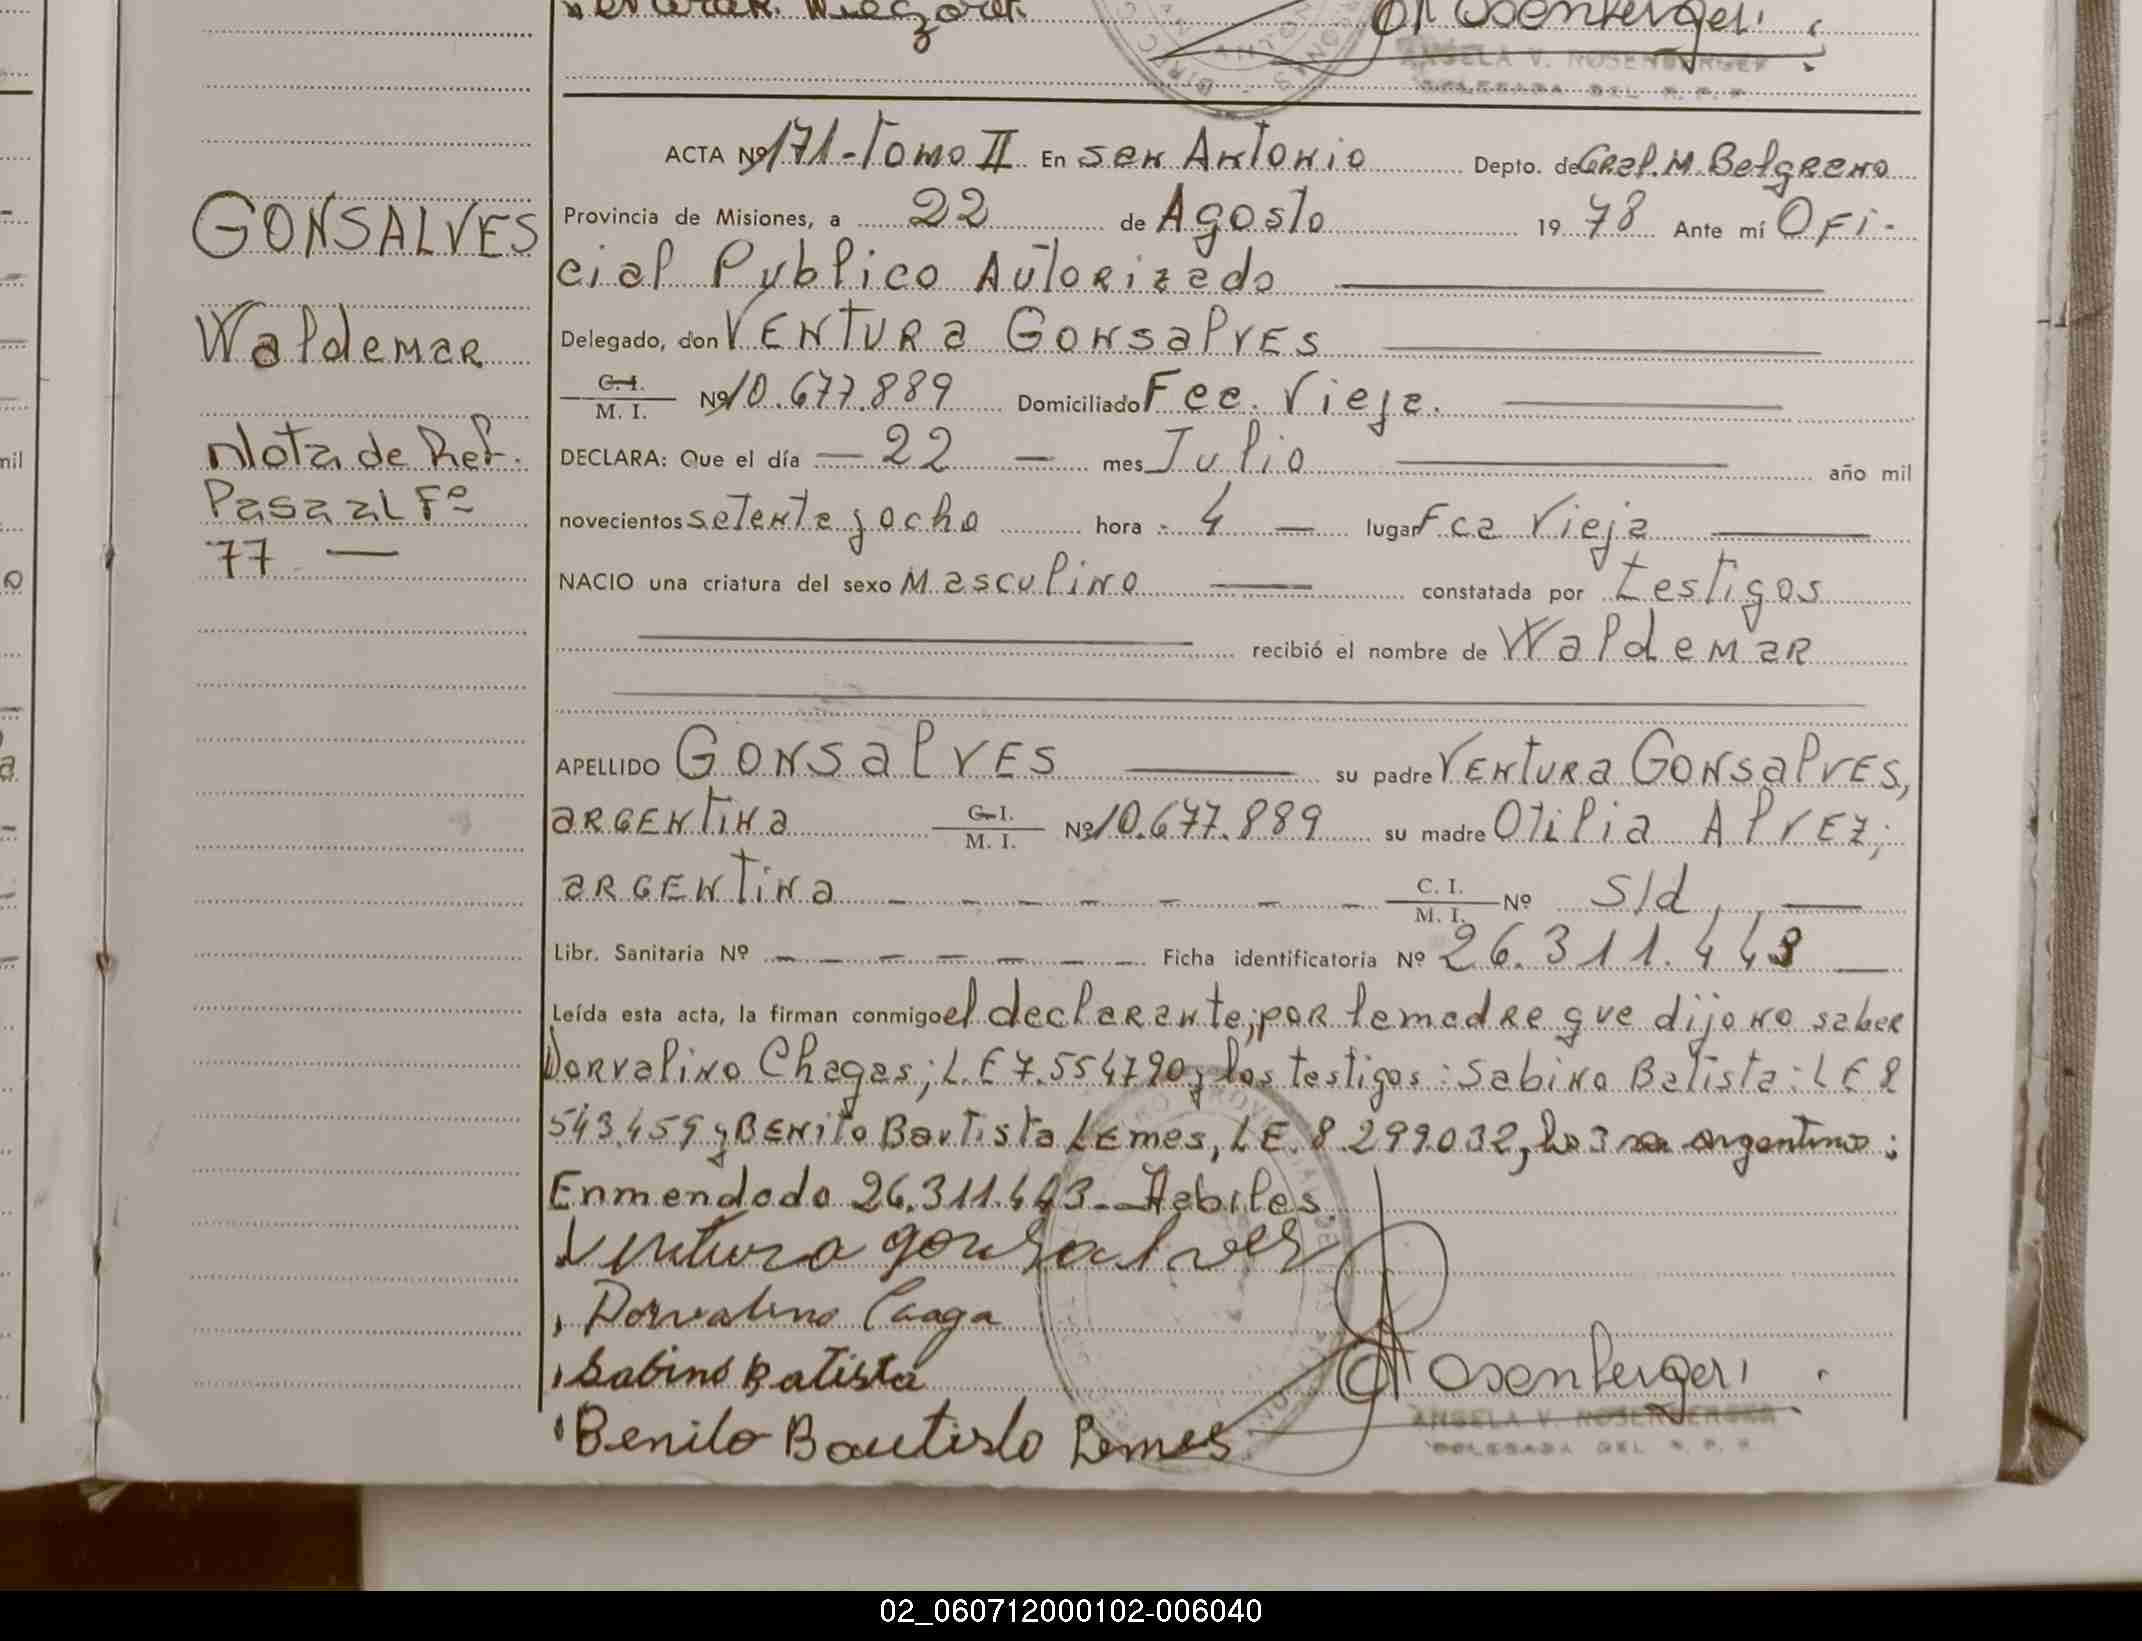 Rosenberger
ANGELA V. ROSENBERGER
DELEGADA DEL R. P. P.
GONSALVES
Waldemar
Nota de Ref.
Pasa al Fº
77 —
ACTA Nº 171-Tomo II En San Antonio Depto. de Gral. M. Belgrano
Provincia de Misiones, a 22 de Agosto 19 78 Ante mí Ofi-
cial Publico Autorizado
Delegado, don Ventura Gonsalves
C. I.
M. I. Nº 10.677.889 Domiciliado Fca. Vieja.
DECLARA: Que el día — 22 — mes Julio año mil
novecientos setenta y ocho hora - 4 — lugar Fca Vieja
NACIO una criatura del sexo Masculino constatada por testigos
recibió el nombre de Waldemar
APELLIDO Gonsalves su padre Ventura Gonsalves,
argentina C. I. M. I. Nº 10.677.889 su madre Otilia Alvez;
argentina - - - - - - C. I. M. I. Nº s/d, , —
Libr. Sanitaria Nº - - - - - - - Ficha identificatoria Nº 26.311.443 —
Leída esta acta, la firman conmigo el declarante; por la madre que dijo no saber
Dorvalino Chagas; L.E 7.554790 y los testigos: Sabino Batista: LE 8
543.459 y Benito Bautista Lemes, LE. 8.299.032, los 3 argentinos:
Enmendado 26.311.443 - Habiles.
Ventura gonsalves
Dorvalino Chaga
Sabino Batista
Benito Bautisto Lemes
Rosenberger
ANGELA V. ROSENBERGER
DELEGADA DEL R. P. P.
02_060712000102-006040